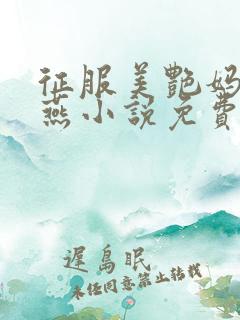 征服美艷妈
燕小說免費
遲島眠
未经同意禁止转载